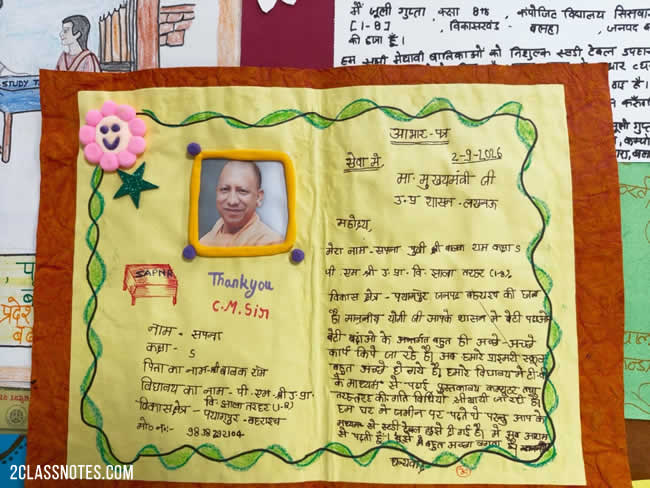 मैं जूली गुप्ता, कक्षा 8th, कंपोजिट विद्यालय सिसवार
[1-8], विकासखंड - बल्हा, जनपद ब
की छात्रा हूँ।
हम सभी मेधावी बालिकाओं को निशुल्क स्टडी टेबल उपहार
STUDY T
आभार-पत्र
सेवा में,
2-9-2026
मा. मुख्यमंत्री जी
उ.प्र शासन-लखनऊ
महोदय,
मेरा नाम-सपना पुत्री श्री बालक राम कक्षा 5
पी. एम. श्री उ. प्रा. वि. झाला तरहर (1-8),
विकास क्षेत्र - पयागपुर जनपद बहराइच की छात्रा
है। माननीय योगी जी आपके शासन में बेटी पढ़ाओ
बेटी बढ़ाओ के अन्तर्गत बहुत ही अच्छे-अच्छे
कार्य किये जा रहे है। अब हमारे प्राइमरी स्कूल
बहुत अच्छे हो गये है। हमारे विद्यालय में टी.वी.
के माध्यम से पढ़ाई पुस्तकालय कम्प्यूटर तथा
तरह तरह की गति विधियाँ सीखायी जा रही है।
हम घर में जमीन पर पढ़ते थे परन्तु आप के
माध्यम से स्टडी टेबल हमें दी गई है। मैं खूब आराम
से पढ़ती हूँ। मुझे बहुत अच्छा लगता है
धन्यवाद
SAPNA
Thank you
C.M. Sir
नाम - सपना
कक्षा - 5
पिता का नाम-श्री बालक राम
विद्यालय का नाम - पी. एम. श्री उ. प्रा.
वि. झाला तरहर (1-8)
विकास क्षेत्र - पयागपुर - बहराइच
मो० नं०:-
2CLASSNOTES.COM